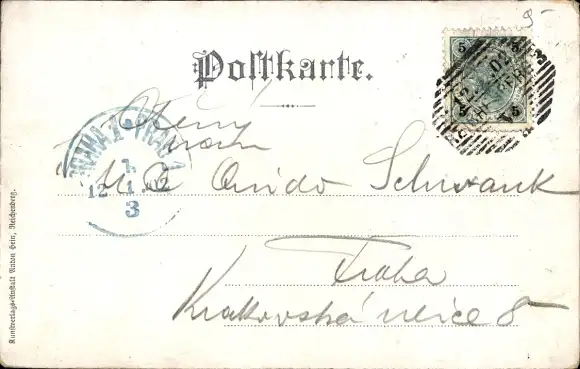 9-
Postkarte.
5 5
5 5
PRAHA 1 PRAG 1
12 1 02
3
MC Quido Schwank
Praha
Krakovská ulice 8
Kunstverlags-Anstalt Anton Hein, Reichenberg.